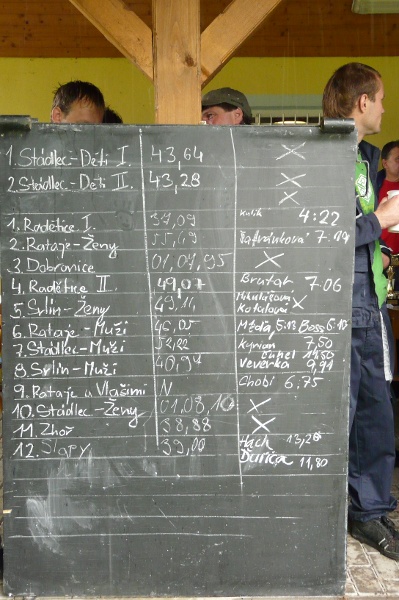 1. Stádlec - Děti I. 43,64
2. Stádlec - Děti II. 43,28
1. Radětice I. 37,09 Kulik 4:22
2. Rataje - Ženy 55,19 Šafránková 7.19
3. Dobronice 01,07,95
4. Radětice II. 49,07 Brutar 7.06
5. Srlín - Ženy 49,11 Mikulášová Kotalová
6. Rataje - Muži 46,05 Méďa, 5.13 Boss 5.17
7. Stádlec - Muži Kyrian 7,50
8. Srlín - Muži 40,94 11,50 Veverka 9,91
9. Rataje u Vlašimi N Chobi 6,75
10. Stádlec - Ženy 01,08,10
11. Zhoř 38,88
12. Slapy 39,00 Hach 13,20
Dariča 11,80